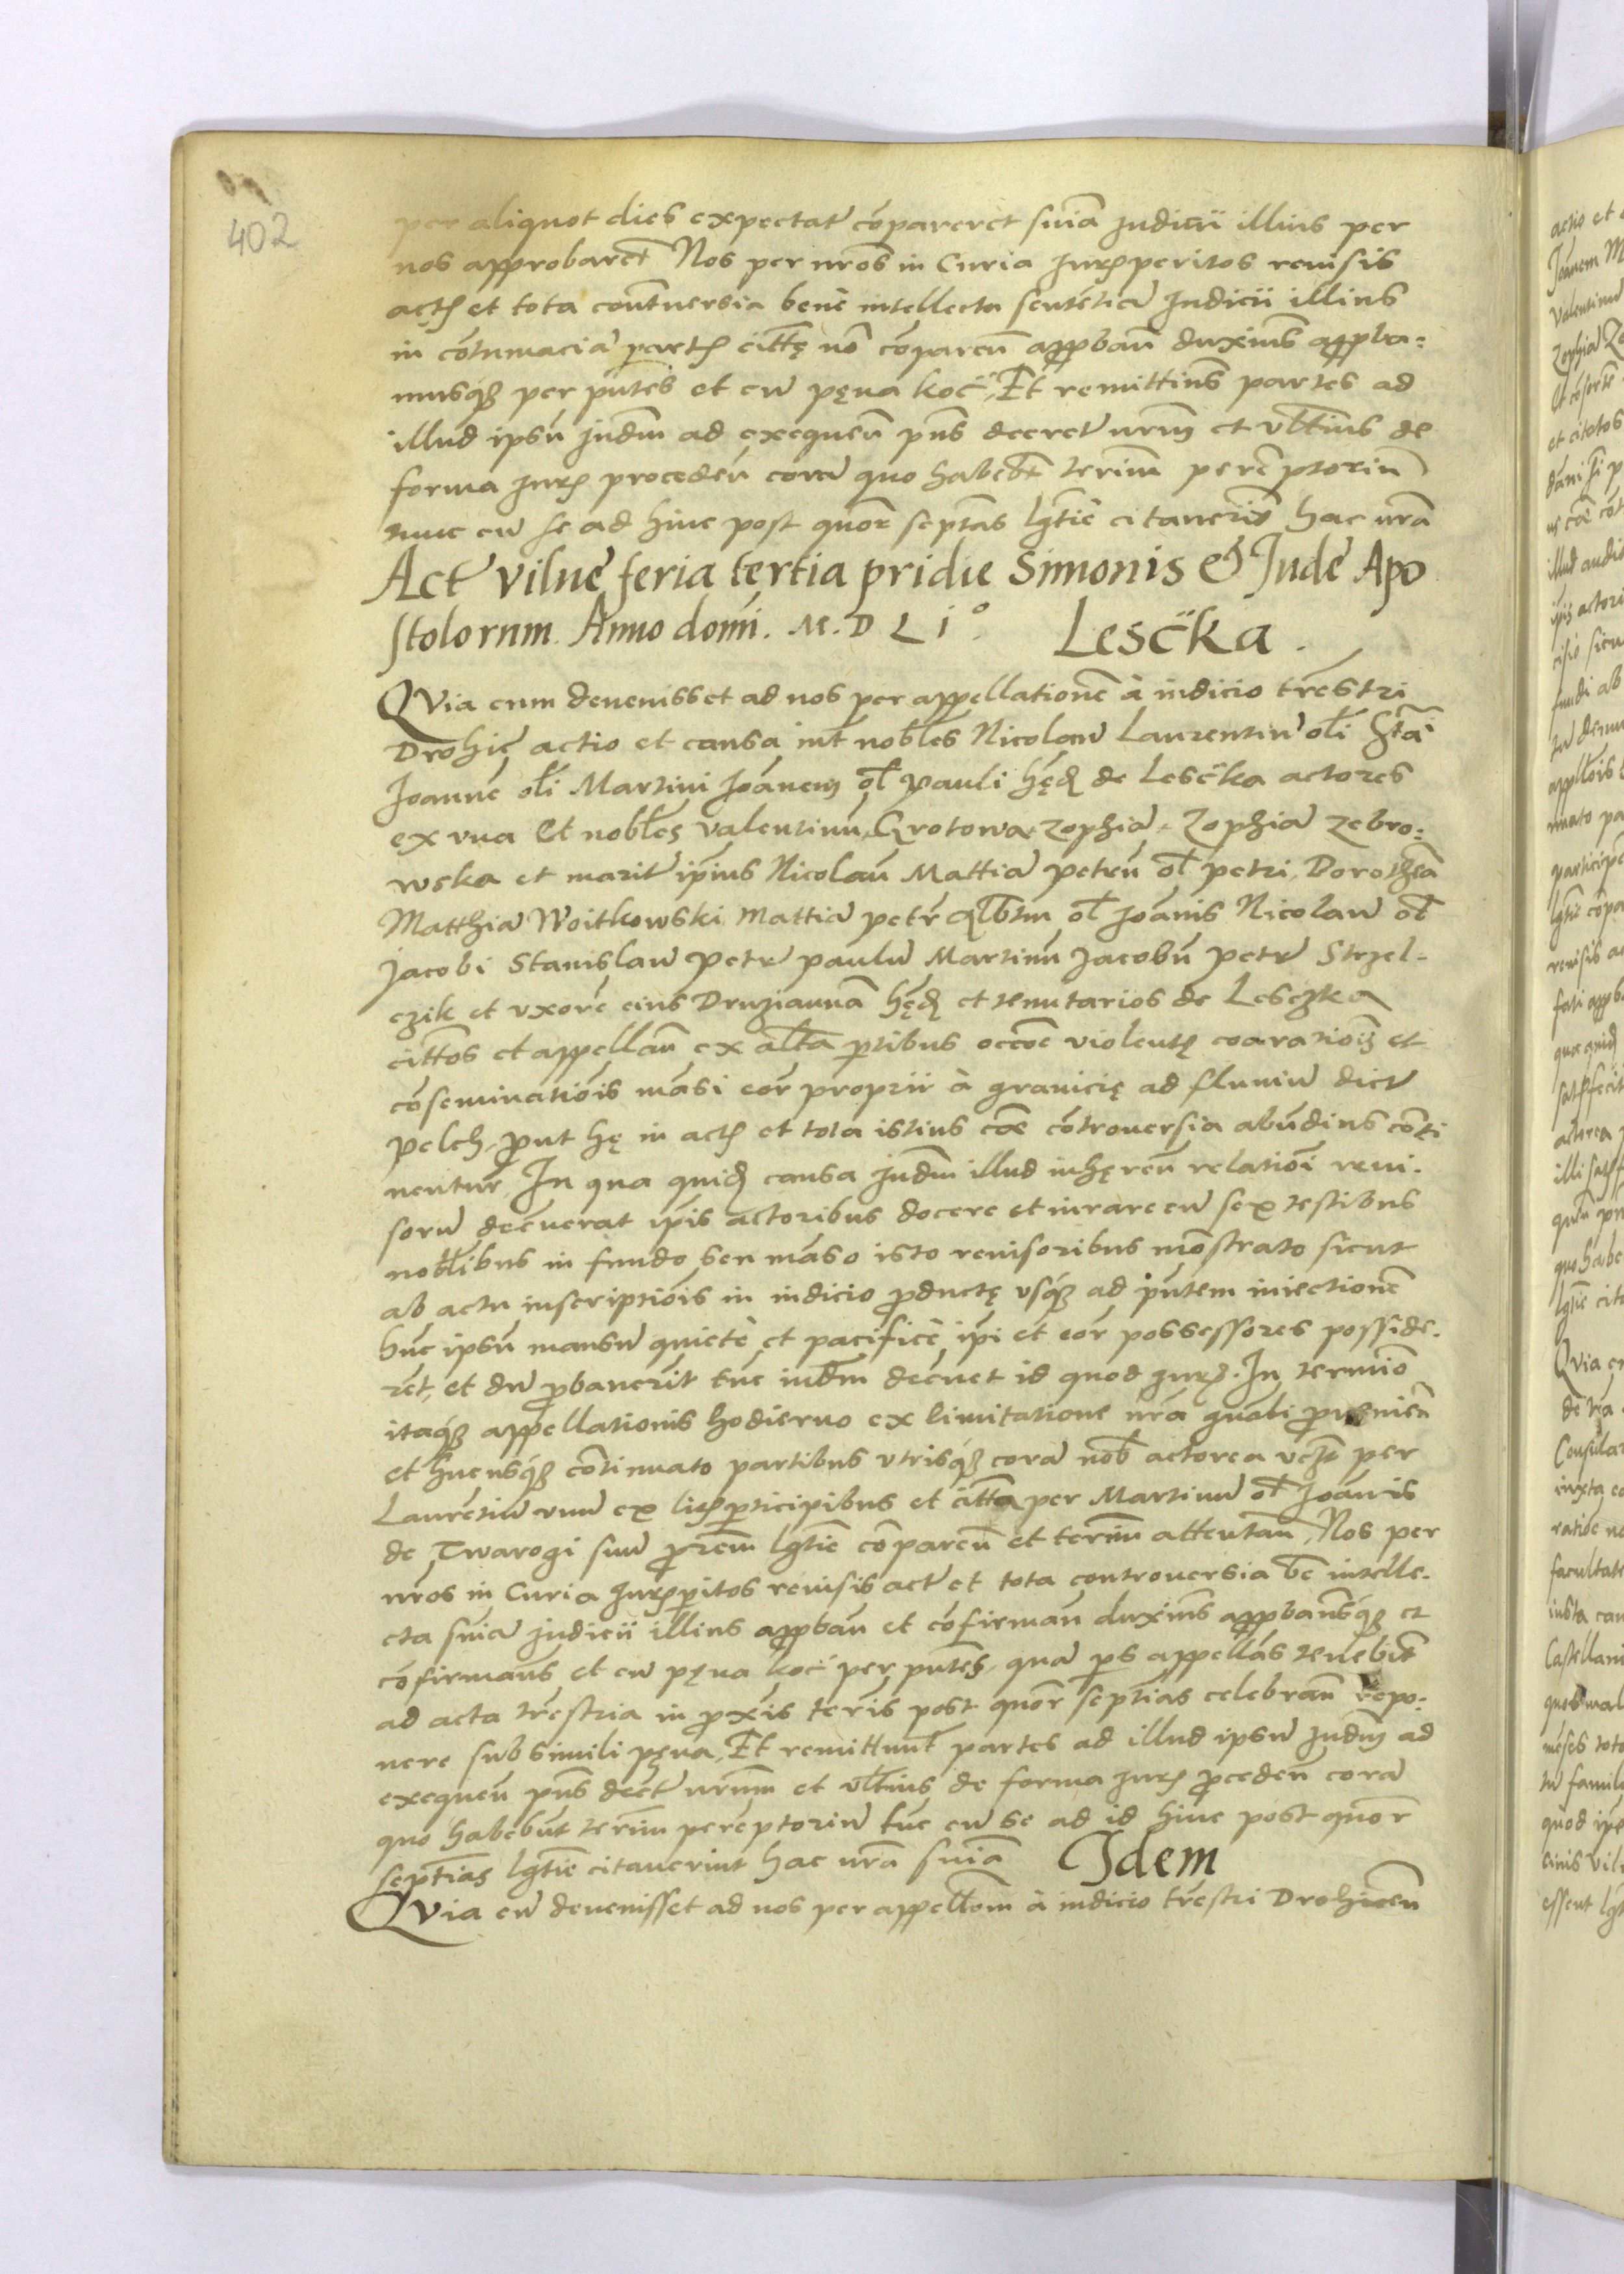 402
per aliquot dies expectatꝛ cōpareret sniā Judicii illius per
nos approbaret Nos per nros in Curia Jurꝭperitos reuisis
actꝭ et tota contuersia bene intellecta sententiā Judicii illius
in cōtumaciā partꝭ cittę nō cōparen̄ appban̄ duximus appba=
musqꝫ per pn̄tes et cū pęna koc̈ Et remittimus partes ad
illud ipsū Judm̄ ad exequen̄ pn̄s decretū nrm̄ et vltius de
forma Jurꝭ proceden̄ corā quo habebt̄ termī perēptoriū
tunc cū se ad hinc post quor septās lgt̄ie citauerīt hac nrā
Act Vilne feria tertia pridie Simonis & Jude Apo
stolorum. Anno domī. M. D L i°.
Lesc̈ka.
QVia cum deuenisset ad nos per appellationē à iudicio trēstri
Drohię actio et causa int̄ nobles Nicolaū Laurentiū oli Stāi
Joannē oli Martini Joānem ol Pauli hęd de Lesc̈ka actores
ex vna Et nobles Valentinū, Grotowa Zophiā, Zophiā Zebro=
wska et maritū ipīus Nicolaū Mattiā petrū ol petri, Dorotheā
Matthiā Woitkowski Mattiā petrū Albtm̄ ol Joānis Nicolaū ol
Jacobi Stanislaū Petrū paulū Martinū Jacobū Petrū Strzel=
czik et vxorē eius Druziannā hęd et tenutarios de Lesczka
cittos et appellan̄ ex alta ptibus occōe violentę coarationis et
cōseminatiōis māsi eor proprii à granicię ad fluuiū dictū
Pelch, put hę in actꝭ et tota istius cāe cōtrouersia abūdius cōti
nentur In qua quid causa Judm̄ illud inhęren̄ relatiōi reui=
sorū decreuerat ipis actoribus docere et iurare cū sex testibus
noblibus in fundo seu māso isto reuisoribus mōstrato sicut
ab actu inscriptiōis in iudicio pductę vsqꝫ ad pn̄tem iniectionē
hūc ipsū mansū quietè et pacificè ipi et eor possessores posside=
rēt, et dū pbauerīt tūc iudm̄ decreuet id quod Jurꝭ. In termiō
itaqꝫ appellationis hodierno ex limitatione nrā gnāli puenien̄
et hucusqꝫ cōtinuato partibus vtrisqꝫ corā nob actorea vcꝫt per
Laurētiū vnū ex lisꝭ pticipibus et citta per Martinū ol Joānnis
de Twarogi suū prem̄ lgt̄ie cōparen̄ et termī attentan̄, Nos per
nros in Curia Jurꝭpitos reuisis actꝭ et tota controuersia bē intelle=
cta sniā Judicii illius appban̄ et cōfirman̄ duximus appbamusqꝫ et
cōfirmams et cū pęna koc̈ per pn̄tes, quā ps appellās tenebit
ad acta trēstria in pxīis terīs post quor septīas celebran̄ repo=
nere sub simili pęna, Et remittunt̄ partes ad illud ipsū Judm̄ ad
exequen̄ pn̄s decretū nrm̄ et vltius de forma Jurꝭ pceden̄ corā
quo habebūt termī perēptoriū tūc cū se ad id hinc post quor
septīas lgt̄ie citauerint hac nrā sniā
Idem
QVia cū deuenisset ad nos per appellōm à iudicio trēstri Drohicen̄